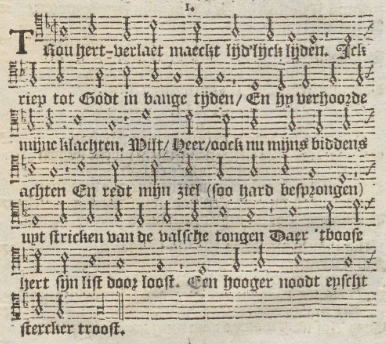 1.
TRou hert-verlaet maeckt lijd'lijck lijden. Ick
riep tot Godt in bange tijden/ En hy verhoorde
mijne klachten. Wilt/ Heer/ oock nu mijns biddens
achten En redt mijn ziel (soo hard besprongen)
uyt stricken van de valsche tongen Daer 'tboose
hert sijn list door loost. Een hooger noodt eyscht
stercker troost.